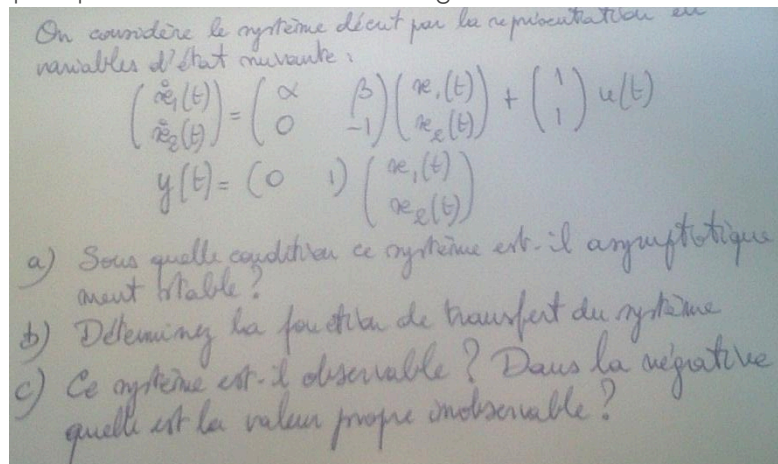 On considère le système décrit par la représentation en
variables d'état suivante :
(ẋ₁(t) ẋ₂(t)) = (α β 0 -1) (x₁(t) x₂(t)) + (1 1) u(t)
y(t) = (0 1) (x₁(t) x₂(t))
a) Sous quelle condition ce système est-il asymptotique
ment stable ?
b) Déterminez la fonction de transfert du système
c) Ce système est-il observable ? Dans la négative
quelle est la valeur propre inobservable ?